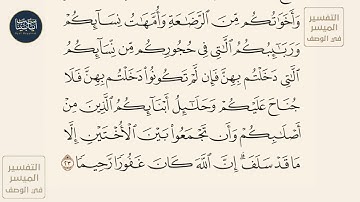 وَأَخَوَٰتُكُم مِّنَ ٱلرَّضَٰعَةِ وَأُمَّهَٰتُ نِسَآئِكُمْ
وَرَبَٰٓئِبُكُمُ ٱلَّٰتِى فِى حُجُورِكُم مِّن نِّسَآئِكُمُ
ٱلَّٰتِى دَخَلْتُم بِهِنَّ فَإِن لَّمْ تَكُونُوا۟ دَخَلْتُم بِهِنَّ فَلَا
جُنَاحَ عَلَيْكُمْ وَحَلَٰٓئِلُ أَبْنَآئِكُمُ ٱلَّذِينَ مِنْ
أَصْلَٰبِكُمْ وَأَن تَجْمَعُوا۟ بَيْنَ ٱلْأُخْتَيْنِ إِلَّا
مَا قَدْ سَلَفَ ۗ إِنَّ ٱللَّهَ كَانَ غَفُورًا رَّحِيمًا ٢٣
التفسير
الميسر
في الوصف
التفسير
الميسر
في الوصف